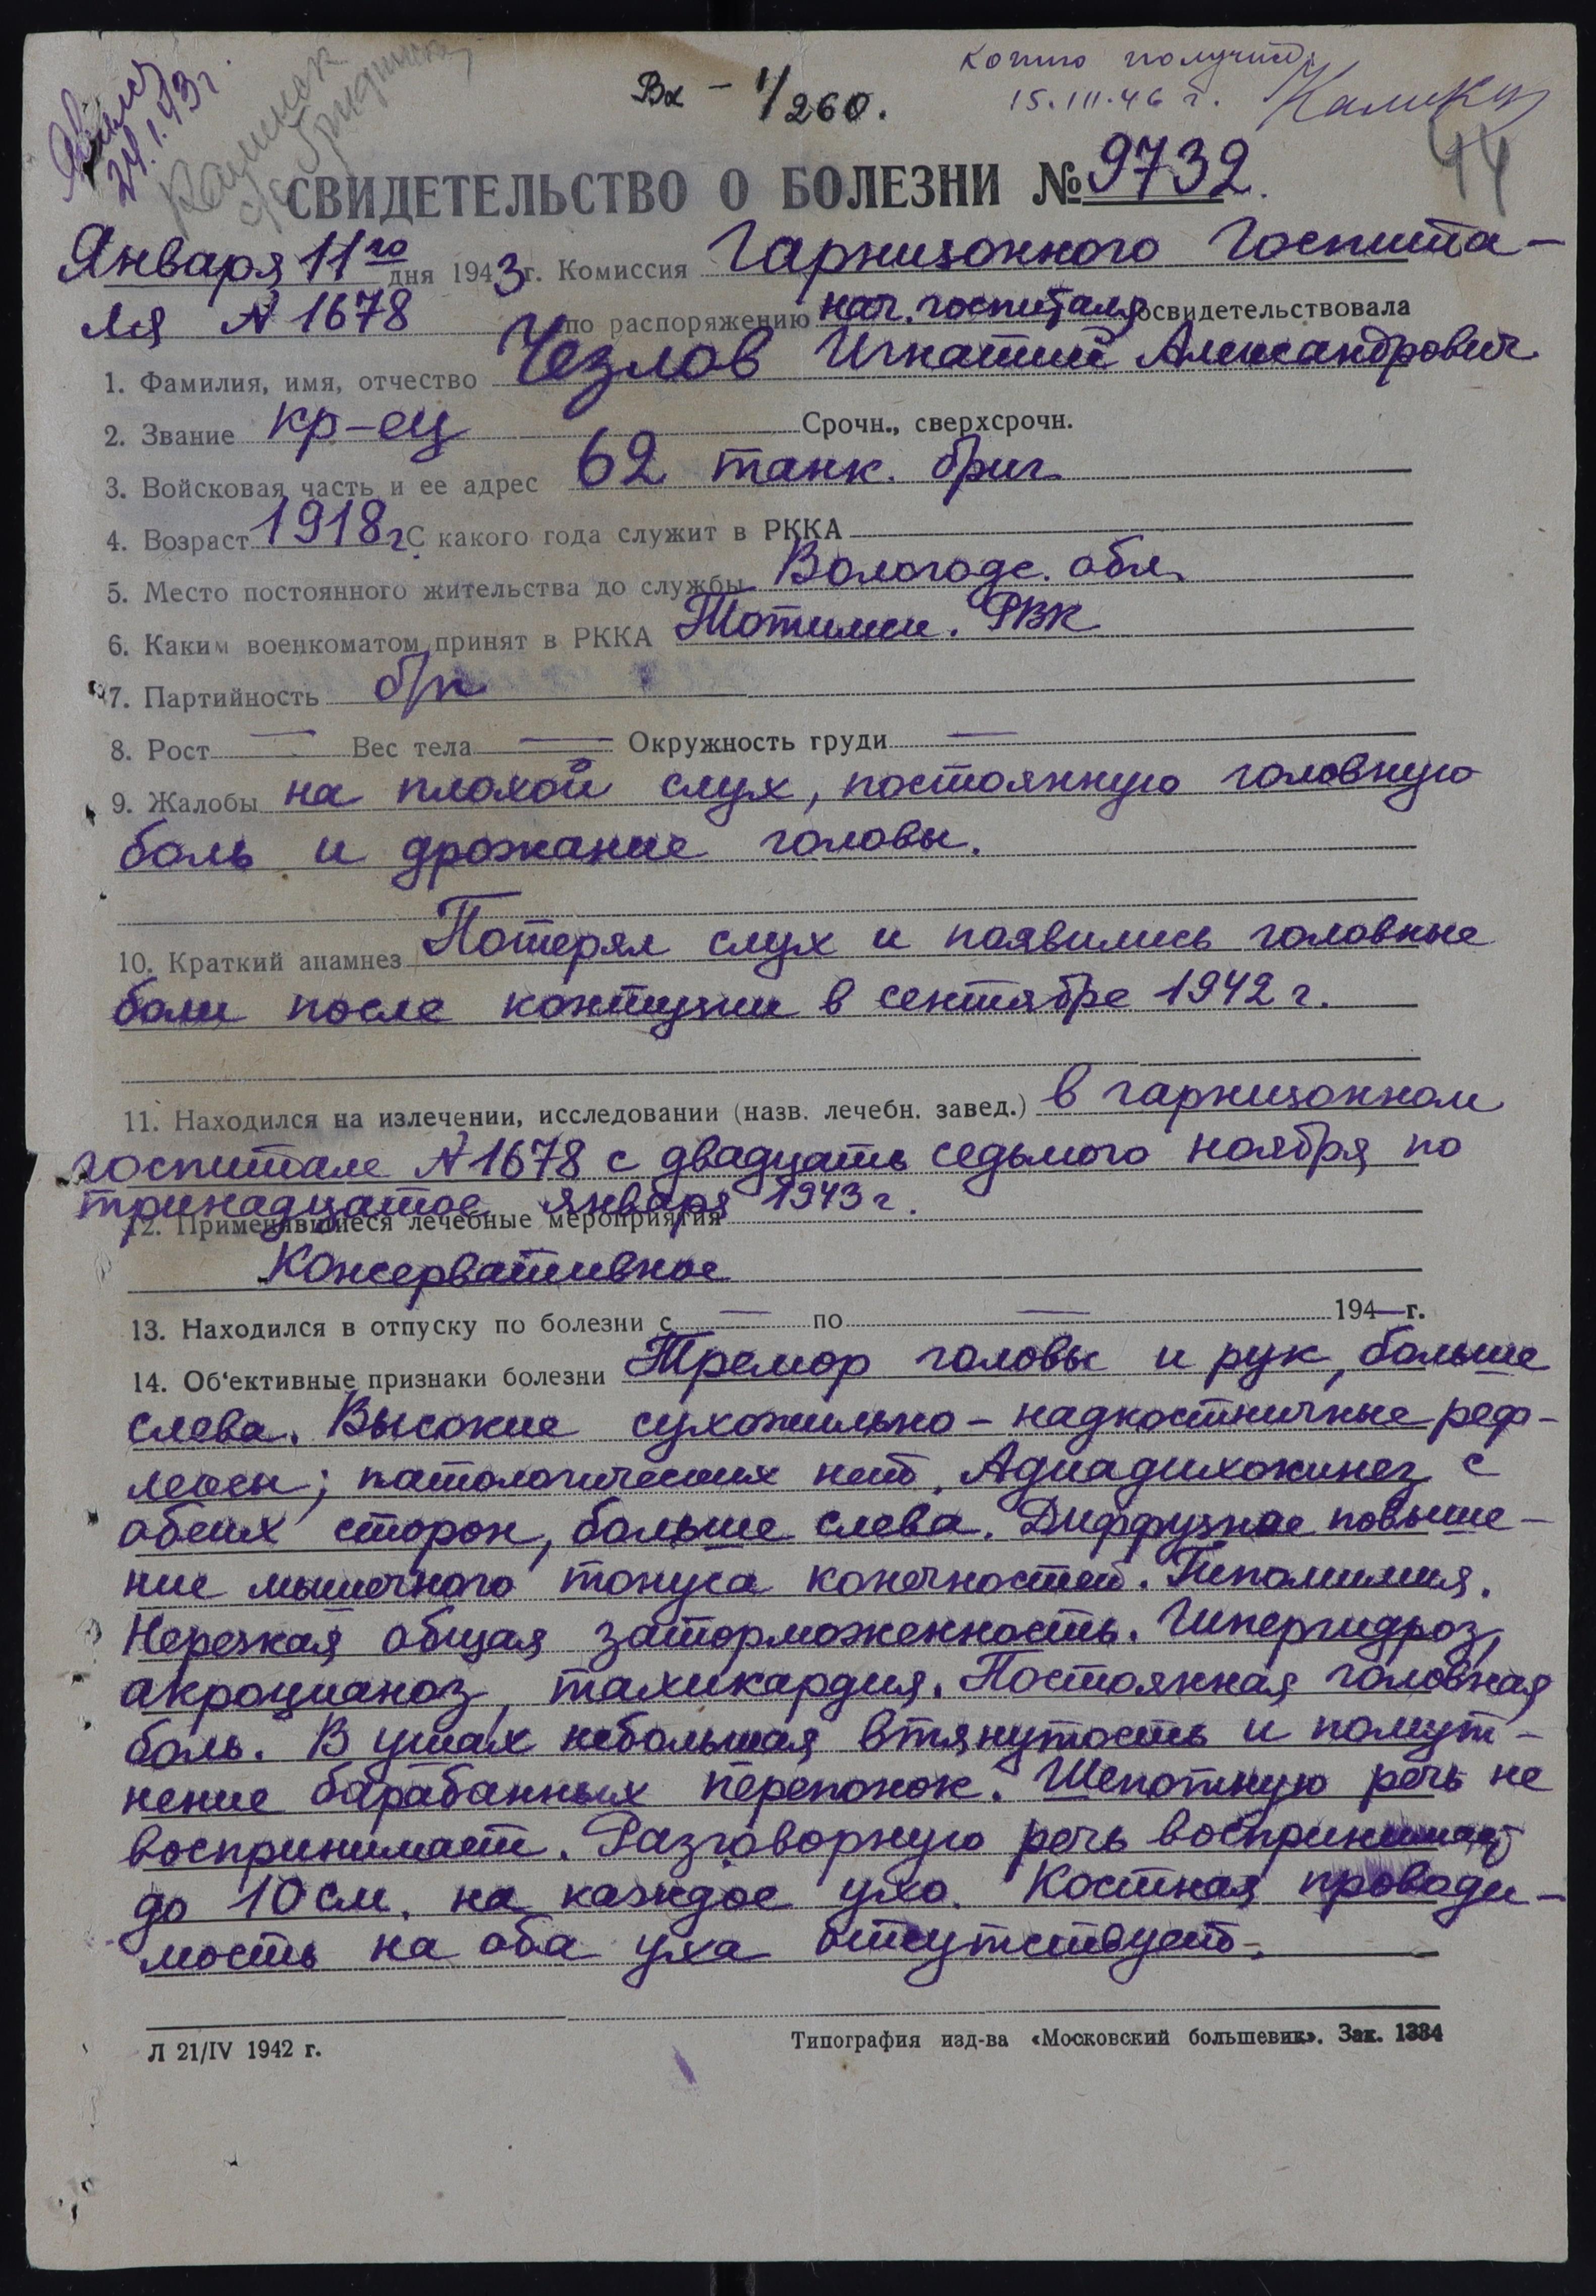 Явился
24.I.43г.
Вх – 1/260.
Копию получил
15.III.46 г.
44
СВИДЕТЕЛЬСТВО О БОЛЕЗНИ № 9732.
Января 11го дня 1943 г. Комиссия Гарнизонного Госпита-
ля № 1678 по распоряжению нач. госпиталя освидетельствовала
1. Фамилия, имя, отчество Чезлов Игнатий Александрович
2. Звание кр-ец Срочн., сверхсрочн.
3. Войсковая часть и ее адрес 62 танк. бриг.
4. Возраст 1918 г. С какого года служит в РККА
5. Место постоянного жительства до службы Вологодс. обл.
6. Каким военкоматом принят в РККА Тотимск. РВК
7. Партийность б/п
8. Рост — Вес тела — Окружность груди —
9. Жалобы на плохой слух, постоянную головную
боль и дрожание головы.
10. Краткий анамнез Потерял слух и появились головные
боли после контузии в сентябре 1942 г.
11. Находился на излечении, исследовании (назв. лечебн. завед.) в гарнизонном
госпитале № 1678 с двадцать седьмого ноября по
тринадцатое января 1943 г.
12. Применявшиеся лечебные мероприятия
Консервативное
13. Находился в отпуску по болезни с — по — 194— г.
14. Об'ективные признаки болезни Тремор головы и рук, больше
слева. Высокие сухожильно-надкостничные реф-
лексы; патологических нет. Адиадихокинез с
обеих сторон, больше слева. Диффузное повыше-
ние мышечного тонуса конечностей. Гипомимия.
Нерезкая общая заторможенность. Гипергидроз,
акроцианоз, тахикардия. Постоянная головная
боль. В ушах небольшая втянутость и помут-
нение барабанных перепонок. Шепотную речь не
воспринимает. Разговорную речь воспринимает
до 10 см. на каждое ухо. Костная проводи-
мость на оба уха отсутствует.
Л 21/IV 1942 г.
Типография изд-ва «Московский большевик». Зак. 1334